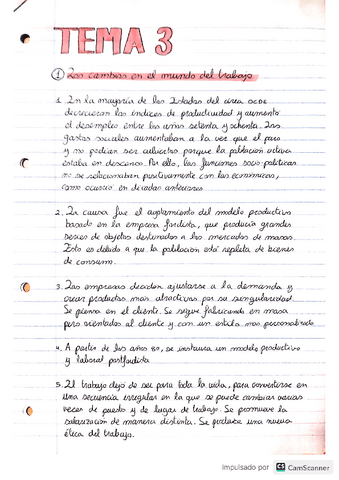 TEMA 3
1 Los cambios en el mundo del trabajo
1. En la mayoría de los Estados del área OCDE
decrecieron los índices de productividad y aumentó
el desempleo entre los años setenta y ochenta. Los
gastos sociales aumentaban a la vez que el paro
y no podían ser cubiertos porque la población activa
estaba en descenso. Por ello, las funciones socio-políticas
no se relacionaban positivamente con las económicas,
como ocurrió en décadas anteriores
2. La causa fue el agotamiento del modelo productivo
basado en la empresa fordista, que producía grandes
series de objetos destinados a los mercados de masas.
Esto es debido a que la población está repleta de bienes
de consumo.
3. Las empresas deciden ajustarse a la demanda y
crear productos más atractivos por su singularidad.
Se piensa en el cliente. Se sigue fabricando en masa
pero orientados al cliente y con un estilo más personalizado
4. A partir de los años 80, se instaura un modelo productivo
y laboral postfordista
5. El trabajo dejó de ser para toda la vida, para convertirse en
una secuencia irregular en la que se puede cambiar varias
veces de puesto y de lugar de trabajo. Se promueve la
salarización de manera distinta. Se produce una nueva
ética del trabajo.
Impulsado por CS CamScanner